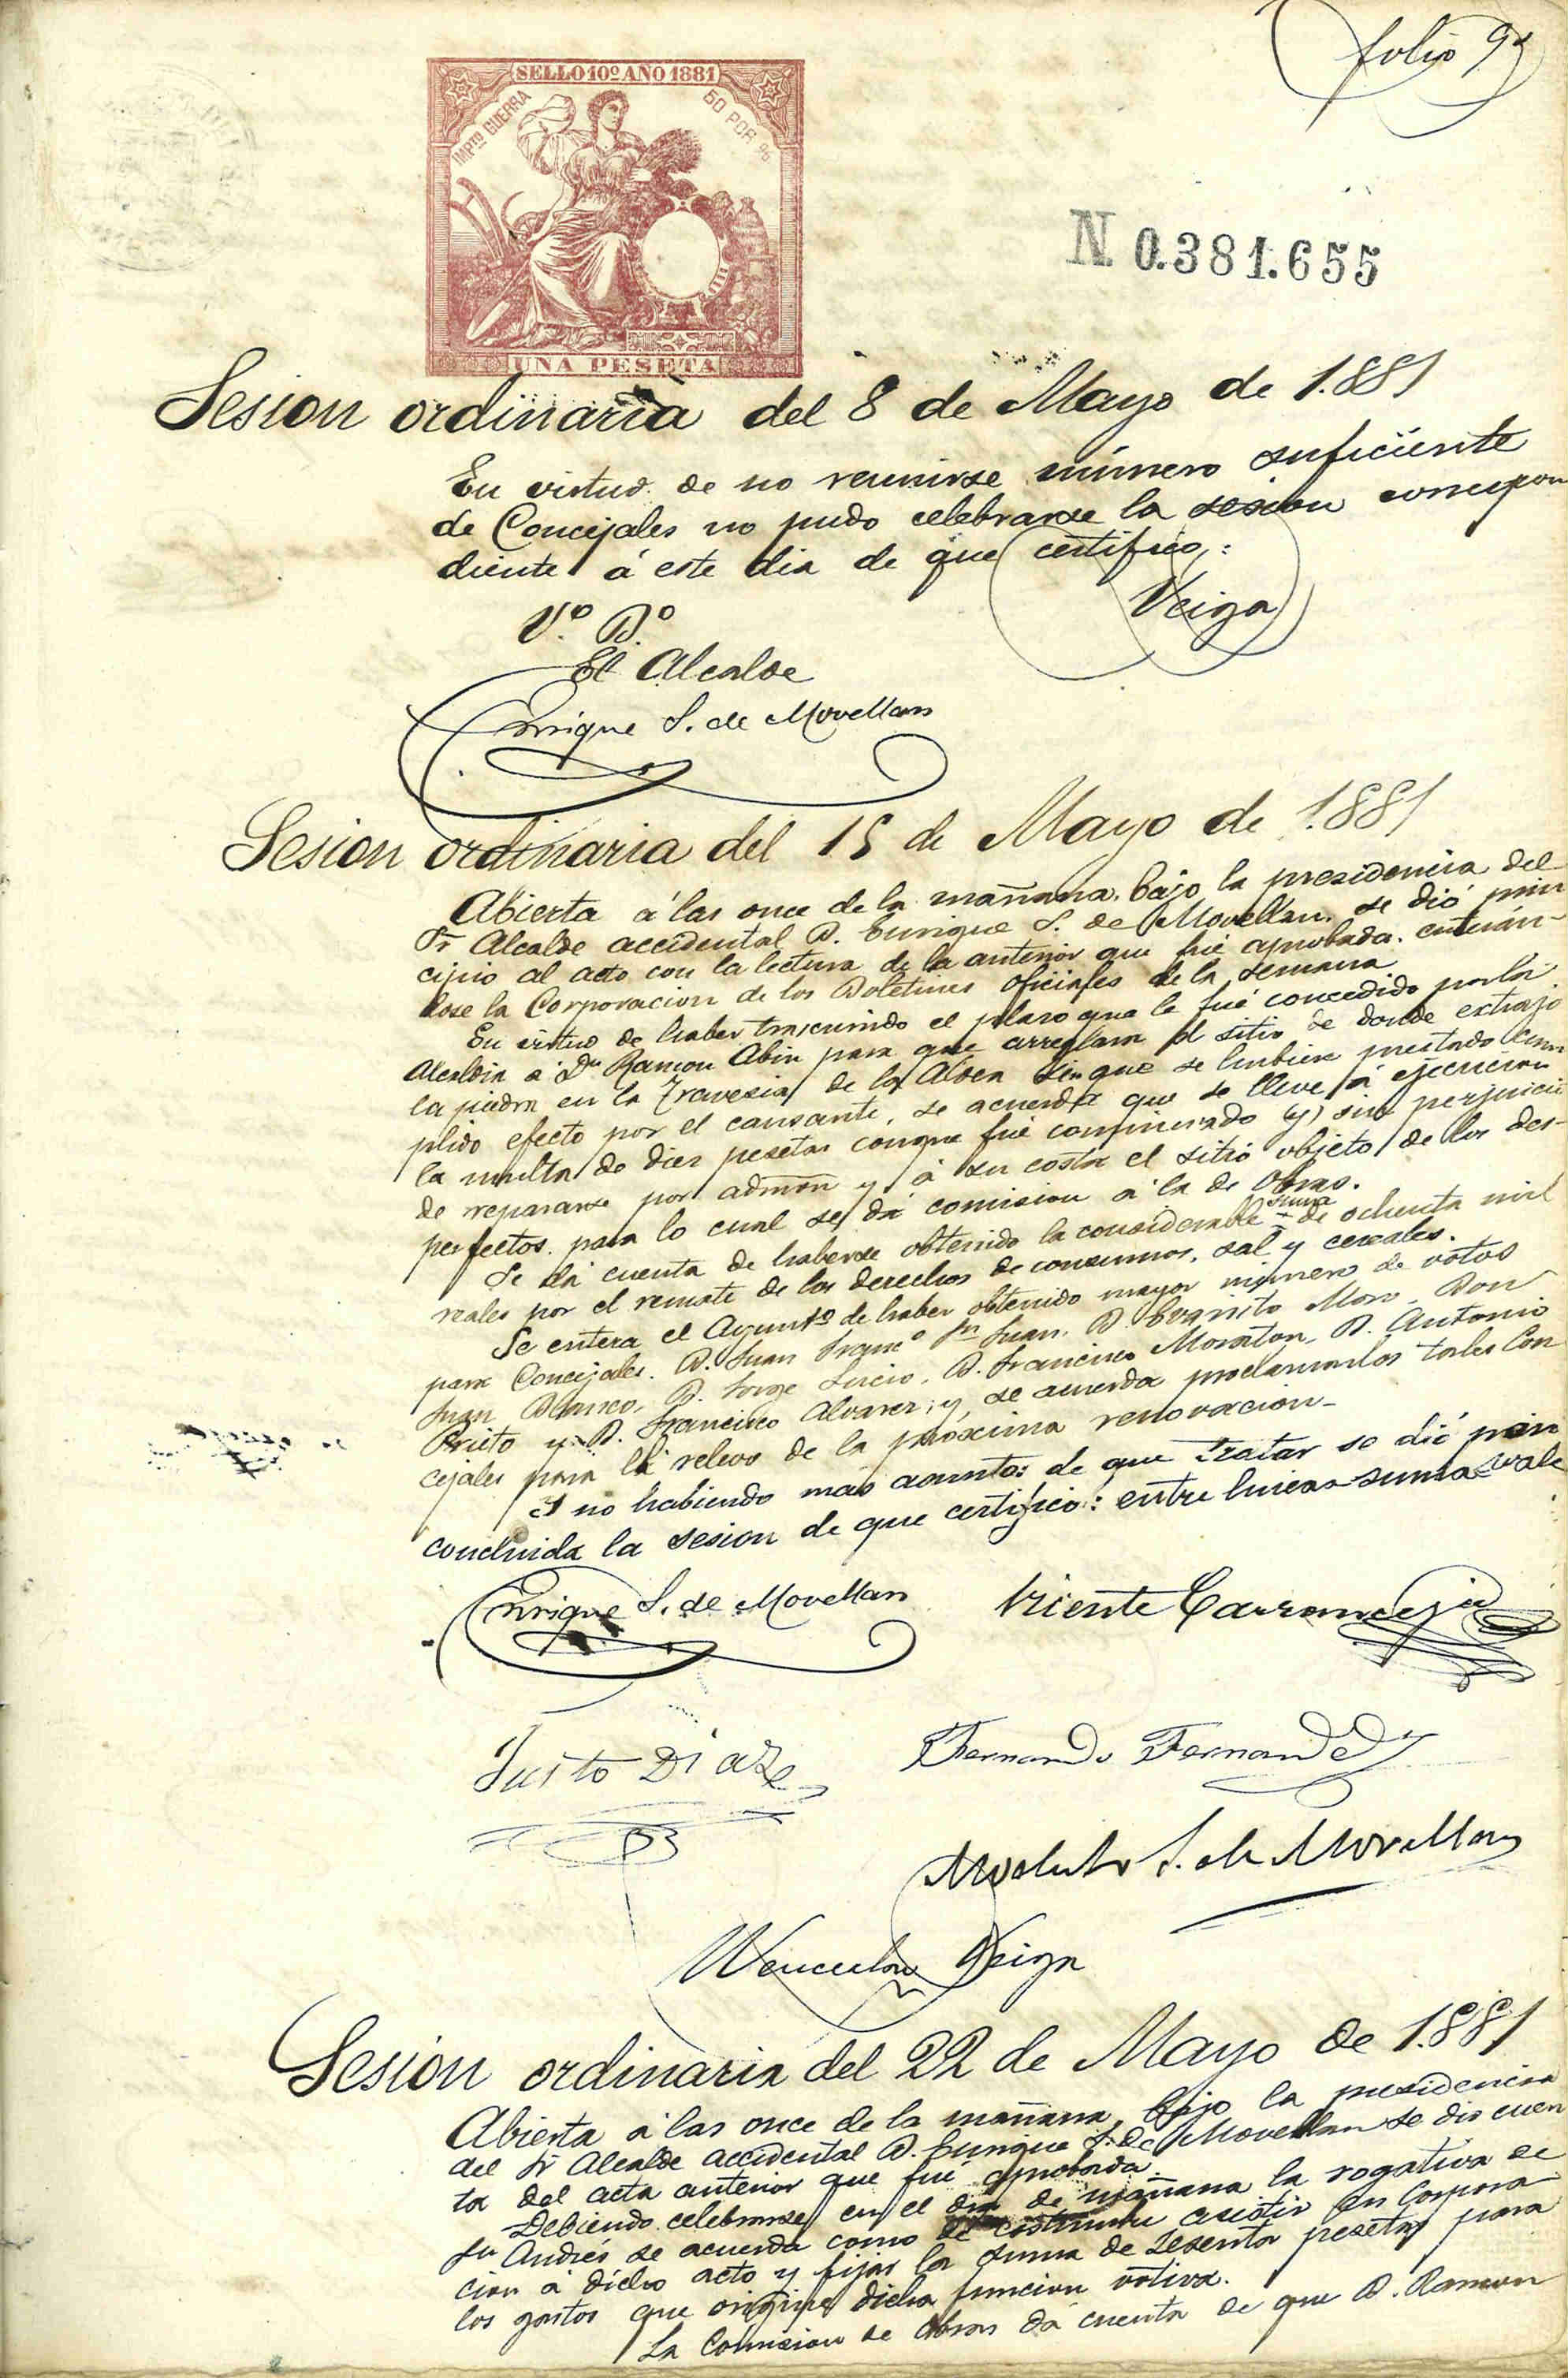 folio 9
SELLO 10º AÑO 1881
IMPTO GUERRA
50 POR %
UNA PESETA
N 0.381.655
Sesion ordinaria del 8 de Mayo de 1.881
En virtud de no reunirse número suficiente
de Concejales no pudo celebrarse la sesion correspon
diente á este dia de que certifico:
Veiga
Vº Bº
El Alcalde
Enrique S. de Movellan
Sesion ordinaria del 15 de Mayo de 1.881
Abierta á las once de la mañana, bajo la presidencia del
Sr Alcalde accidental D. Enrique S. de Movellan, se dió prin
cipio al acto con la lectura de la anterior que fué aprobada, enterán-
dose la Corporacion de los Boletines oficiales de la semana
En virtud de haber trascurrido el plazo que le fué concedido por la
Alcaldia á Dn Ramon Abin para que arreglara el sitio de donde extrajo
la piedra en la Travesia de la Aldea sin que se hubiera prestado cum
plido efecto por el causante, se acuerda que se lleve á ejecucion
la multa de diez pesetas conque fué conminado (y) sin perjuicio
de repararse por admon y á su costa el sitio objeto de los des-
perfectos, para lo cual se dá comision á la de Obras.
Se dá cuenta de haberse obtenido la considerable suma de ochenta mil
reales por el remate de los derechos de consumos, sal y cereales.
Se entera el Ayuntº de haber obtenido mayor número de votos
para Concejales. D. Juan Francº Sn Juan, D. Evaristo Moro, Don
Juan Blanco, D. Jorge Lucio, D. Francisco Moraton, D. Antonio
Prieto y D. Francisco Alvarez; y se acuerda proclamarlos tales Con
cejales para el relevo de la próxima renovacion-
Y no habiendo mas asuntos de que tratar se dió por
concluida la sesion de que certifico: entre lineas-suma-vale
Enrique S. de Movellan Vicente Carranceja
Justo Diaz Fernando Fernandez
Modesto S. de Movellan
Wenceslao Veiga
Sesion ordinaria del 22 de Mayo de 1.881
Abierta á las once de la mañana, bajo la presidencia
del Sr Alcalde accidental D. Enrique S. de Movellan se dió cuen
ta del acta anterior que fué aprobada
Debiendo celebrarse en el dia de mañana la rogativa de
Sn Andrés se acuerda como de costumbre asistir en Corpora
cion á dicho acto y fijar la suma de sesenta pesetas para
los gastos que origine dicha funcion votiva.
La Comision de Obras dá cuenta de que D. Ramon